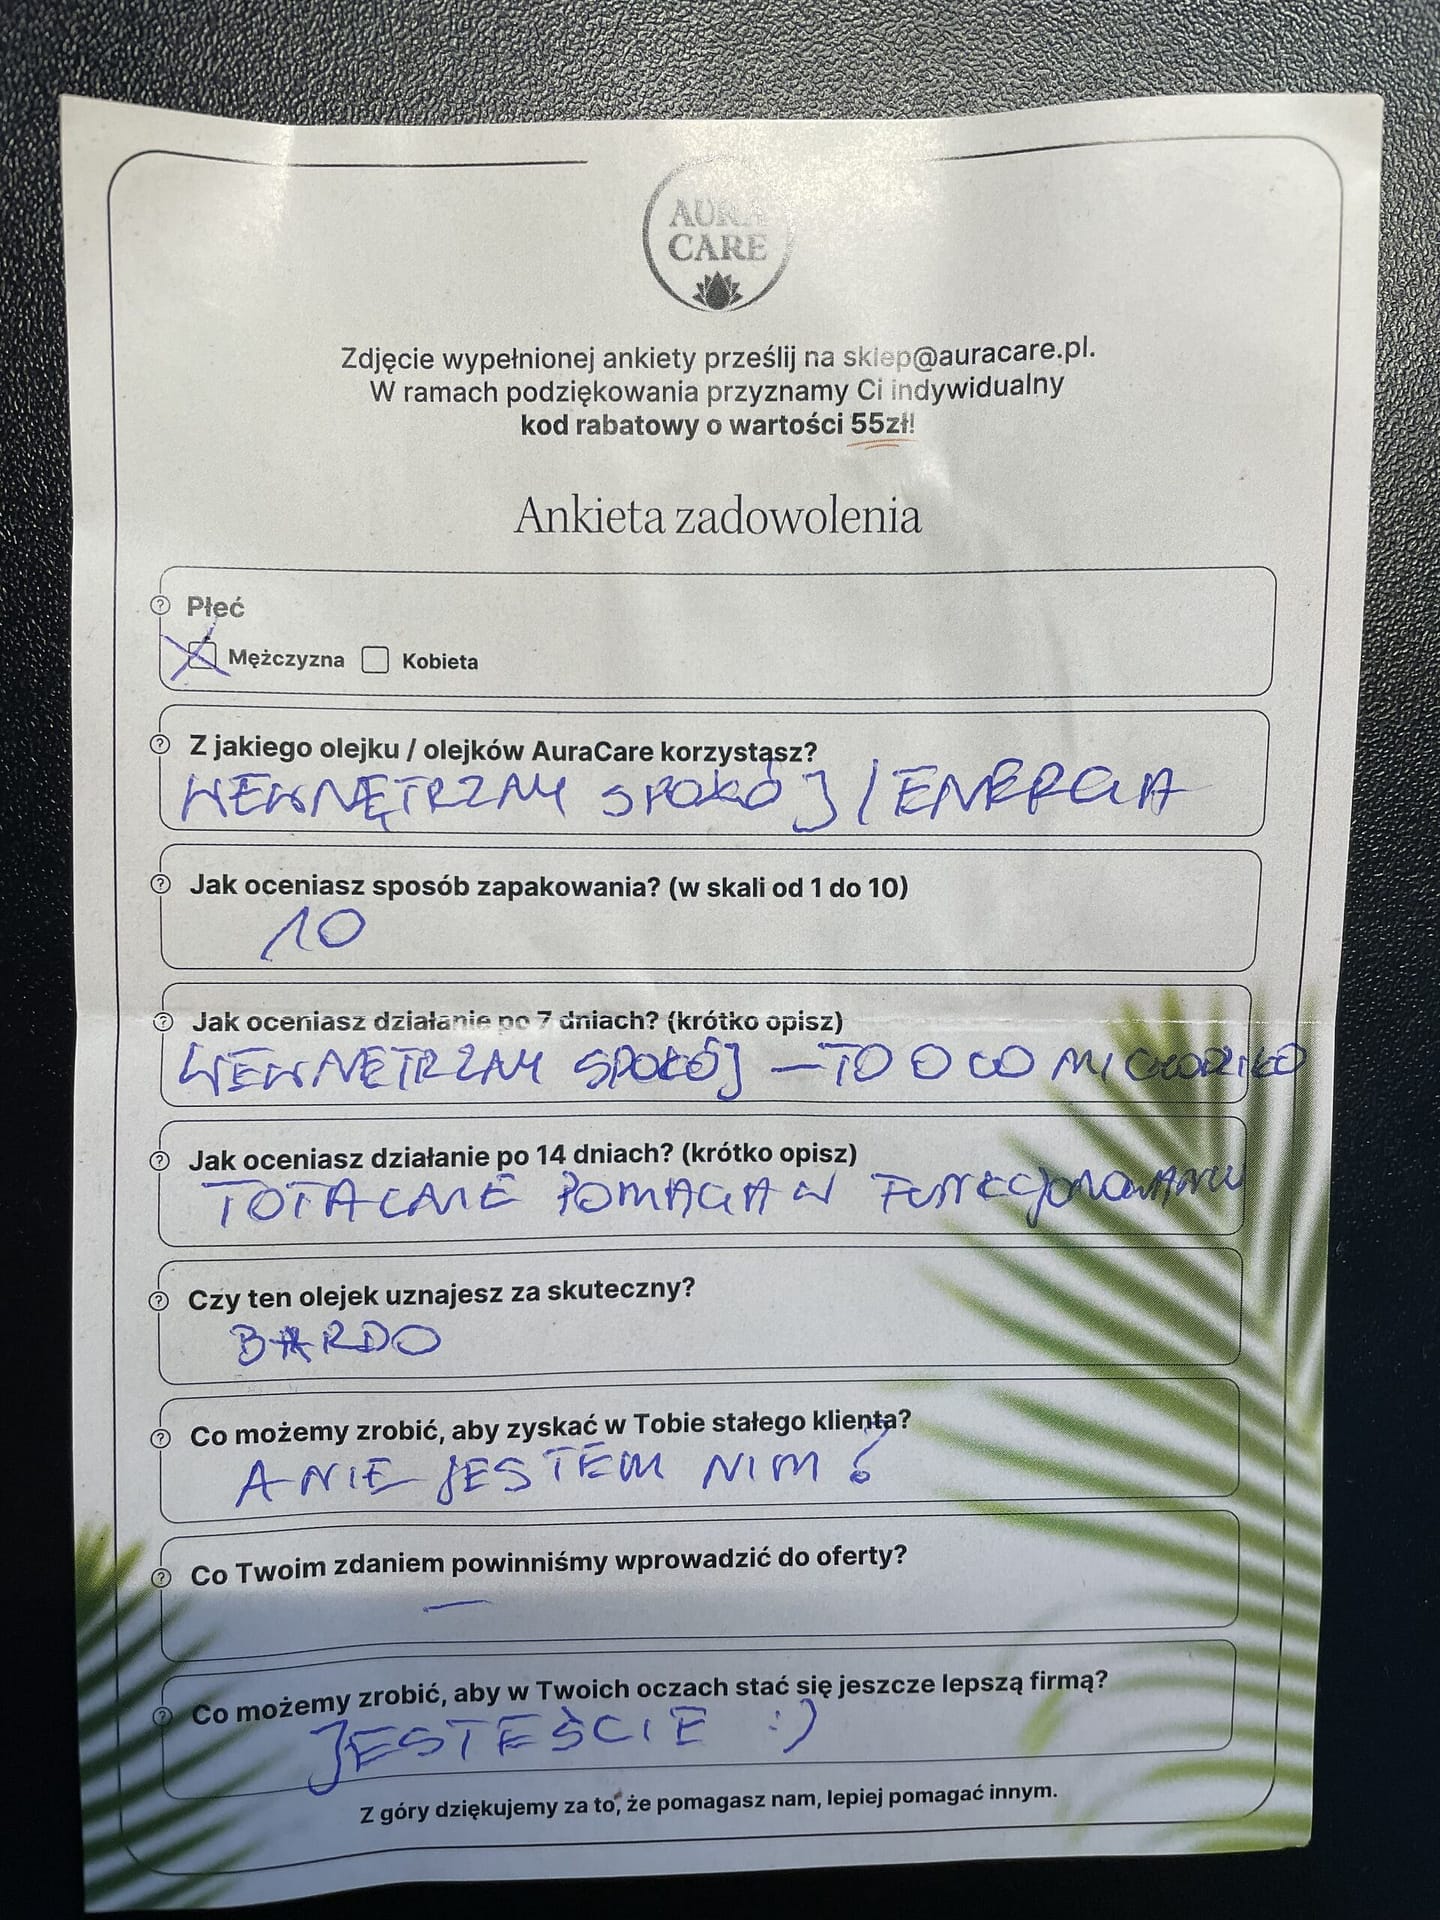 AURA
CARE
Zdjęcie wypełnionej ankiety prześlij na sklep@auracare.pl.
W ramach podziękowania przyznamy Ci indywidualny
kod rabatowy o wartości 55zł!
Ankieta zadowolenia
Płeć
Mężczyzna Kobieta
Z jakiego olejku / olejków AuraCare korzystasz?
WEWNĘTRZNY SPOKÓJ / ENERGIA
Jak oceniasz sposób zapakowania? (w skali od 1 do 10)
10
Jak oceniasz działanie po 7 dniach? (krótko opisz)
WEWNĘTRZNY SPOKÓJ – TO O CO MI CHODZIŁO
Jak oceniasz działanie po 14 dniach? (krótko opisz)
TOTALNIE POMAGA W FUNKCJONOWANIU
Czy ten olejek uznajesz za skuteczny?
BARDO
Co możemy zrobić, aby zyskać w Tobie stałego klienta?
A NIE JESTEM NIM ?
Co Twoim zdaniem powinniśmy wprowadzić do oferty?
—
Co możemy zrobić, aby w Twoich oczach stać się jeszcze lepszą firmą?
JESTEŚCIE :)
Z góry dziękujemy za to, że pomagasz nam, lepiej pomagać innym.